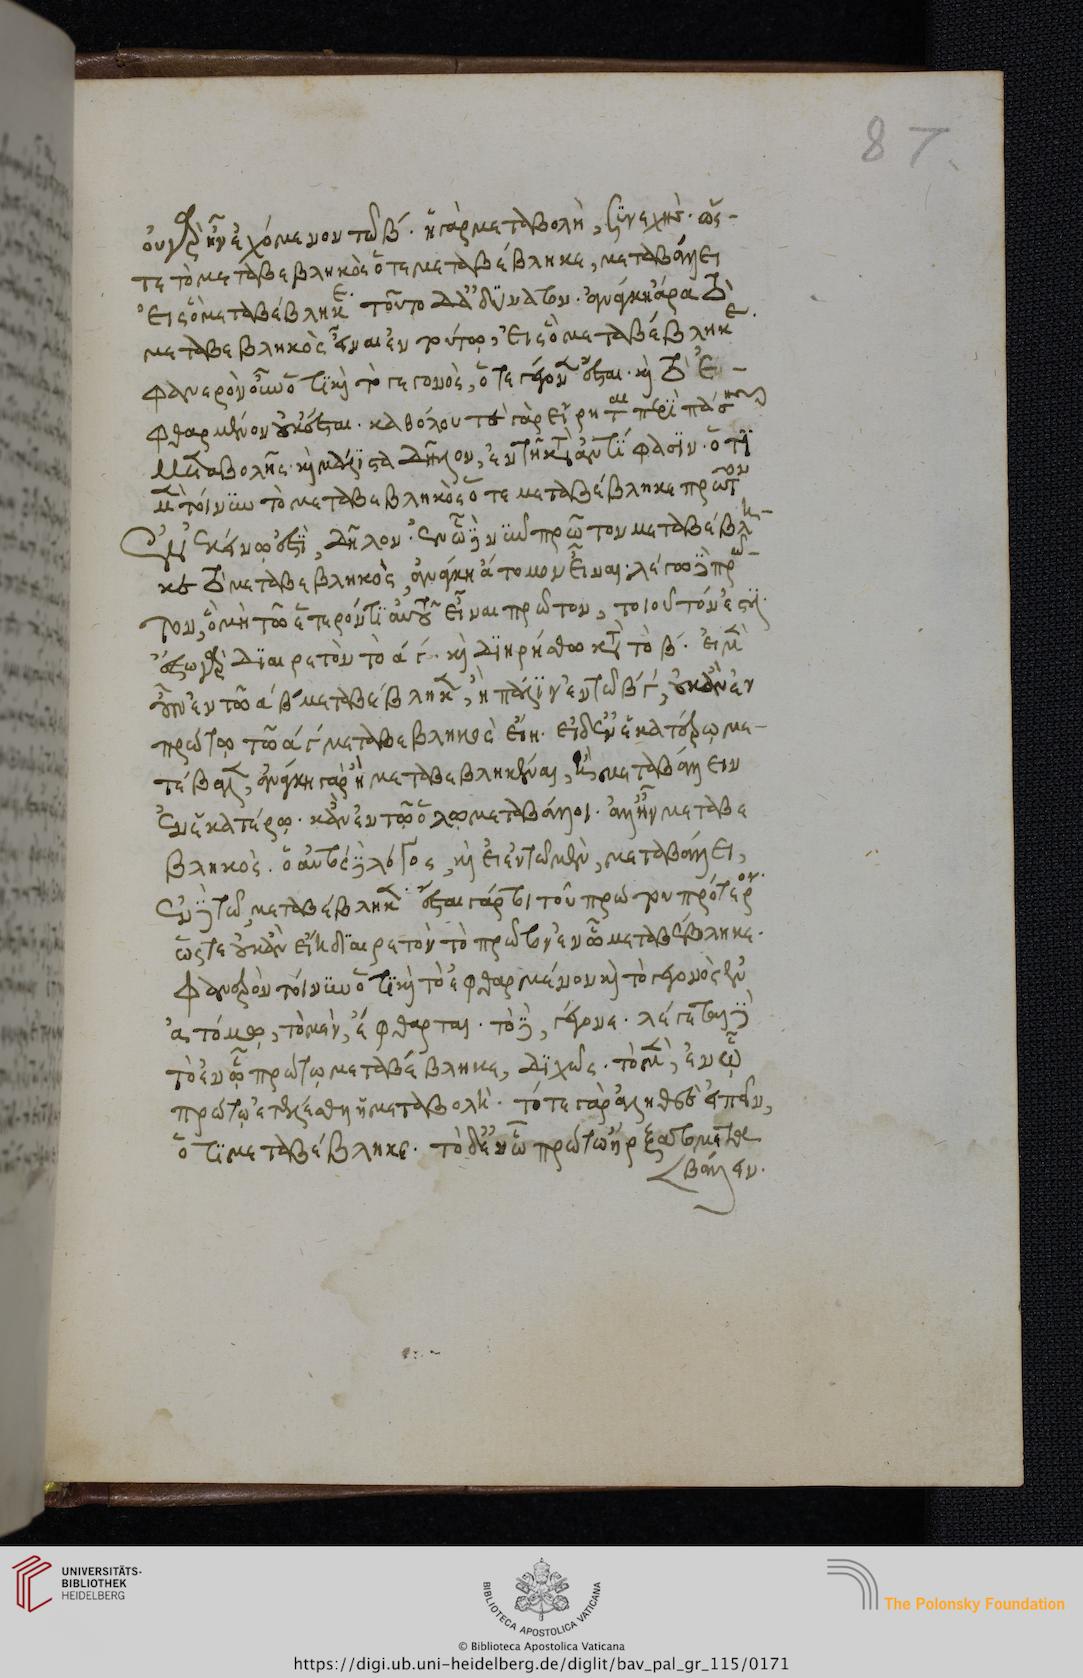 87
οὐ γὰρ ἦν ἐχόμενον τῶ β. ἡ γὰρ μεταβολὴ, συνεχής. ὥς-
τε τὸ μεταβεβληκὸς ὅτε μεταβέβληκε, μεταβάλλει
εἰς ὃ μεταβέβληκε. τοῦτο δ' ἀδύνατον. ἀνάγκη ἄρα τὸ
μεταβεβληκὸς εἶναι ἐν τούτω, εἰς ὃ μεταβέβληκε.
φανερὸν οὖν ὅτι καὶ τὸ γεγονὸς, ὅτε γέγονεν ἔσται. καὶ τὸ ἐ-
φθαρμένον οὐκ ἔσται. καθόλου τε γὰρ εἴρηται περὶ πάσης
μεταβολῆς. καὶ μάλιστα δῆλον, ἐν τῆ κατ' ἀντίφασιν. ὅτι
μὲν τοίνυν τὸ μεταβεβληκὸς ὅτε μεταβέβληκε πρῶτον
ἐν ἐκείνω ἐστὶ, δῆλον. ἐν ὧ δὲ πρῶτον μεταβέβλη-
κε τὸ μεταβεβληκὸς, ἀνάγκη ἄτομον εἶναι. λέγω δὲ πρῶ-
τον, ὃ μὴ τῶ ἕτερόν τι αὐτοῦ εἶναι πρῶτον, τοιοῦτόν ἐστι.
ἔστω γὰρ διαιρετὸν τὸ α γ. καὶ διηρήσθω κατὰ τὸ β. εἰ μὲν
οὖν ἐν τῶ α β μεταβέβληκεν, ἢ πάλιν ἐν τῶ β γ, οὐκ ἂν ἐν
πρώτω τῶ α γ μεταβεβληκὸς εἴη. εἰ δ' ἐν ἑκατέρω με-
τέβαλλεν, ἀνάγκη γὰρ ἢ μεταβεβληκέναι, ἢ μεταβάλλειν
ἐν ἑκατέρω. κἂν ἐν τῶ ὅλω μεταβάλλοι. ἀλλ' ἦν μεταβε
βληκὸς. ὁ αὐτὸς δὲ λόγος, καὶ εἰ ἐν τῶ μὲν, μεταβάλλει,
ἐν δὲ τῶ, μεταβέβληκεν. ἔσται γάρ τι τοῦ πρώτου πρότερον.
ὥστε οὐκ ἂν εἴη διαιρετὸν τὸ πρῶτον ἐν ὧ μεταβέβληκε.
φανερὸν τοίνυν ὅτι καὶ τὸ ἐφθαρμένον καὶ τὸ γεγονὸς ἐν
ἀτόμω, τὸ μὲν, ἔφθαρται. τὸ δὲ, γέγονε. λέγεται δὲ
τὸ ἐν ὧ πρώτω μεταβέβληκε, διχῶς. τὸ μὲν, ἐν ὧ
πρώτω ἐπετελέσθη ἡ μεταβολή. τότε γὰρ ἀληθὲς εἰπεῖν,
ὅτι μεταβέβληκε. τὸ δ' ἐν ὧ πρώτω ἤρξατο μετα
βάλλειν.
UNIVERSITÄTS-
BIBLIOTHEK
HEIDELBERG
BIBLIOTECA APOSTOLICA VATICANA
The Polonsky Foundation
© Biblioteca Apostolica Vaticana
https://digi.ub.uni-heidelberg.de/diglit/bav_pal_gr_115/0171